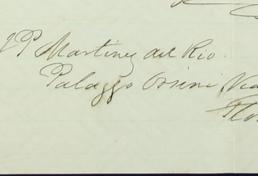 P Martinez del Rio
Palazzo Orsini, Via